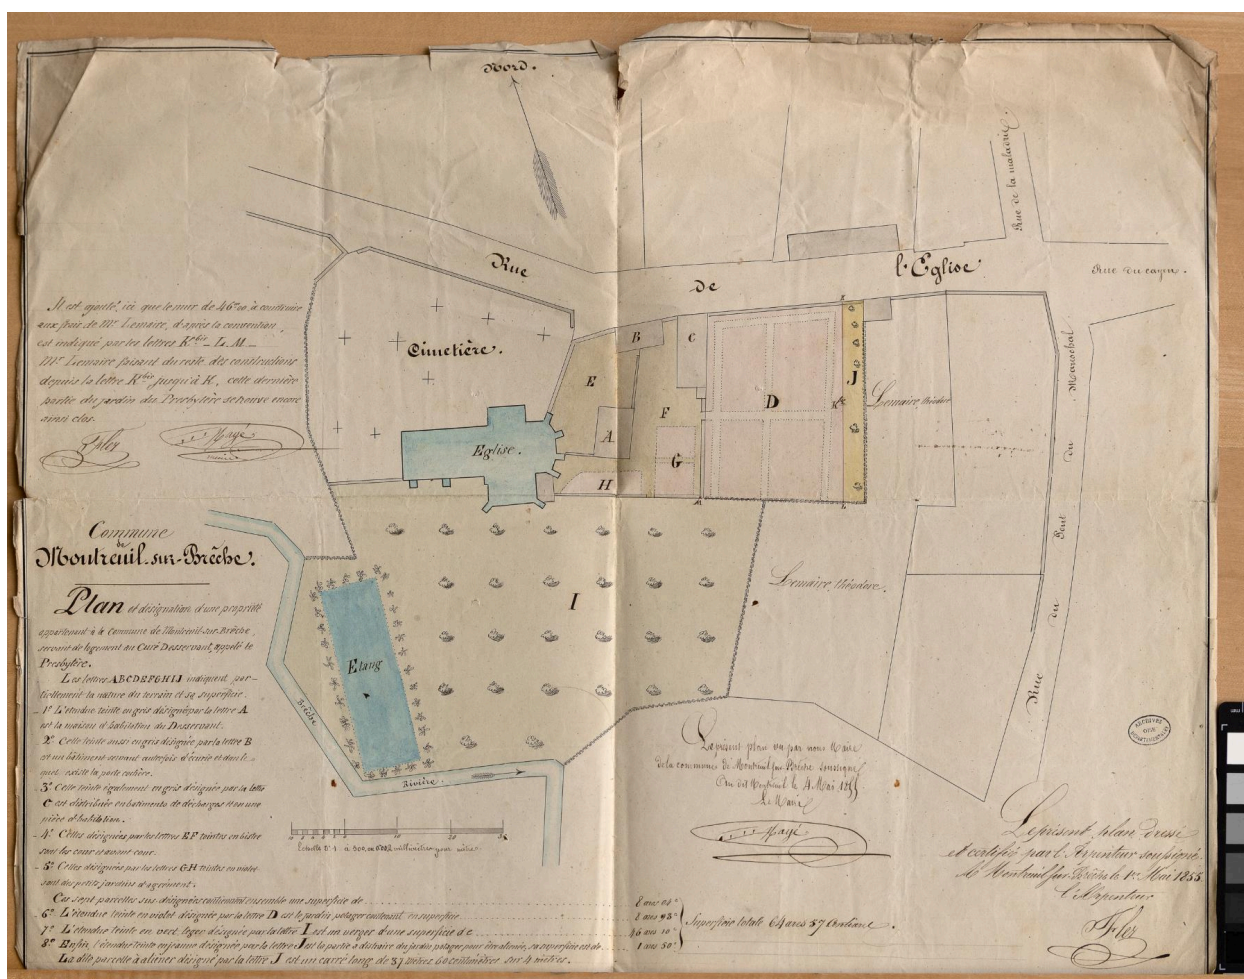 Nord.
Rue de la maladrie.
Rue
de
l'Eglise
Rue du cayin.
Il est ajouté, ici que le mur de 46m00, à construire
aux frais de Mr Lemaire, d'après la convention,
est indiqué par les lettres Kbis - L. M -
Mr Lemaire faisant du reste des constructions
depuis la lettre Kbis jusqu'à K, cette dernière
partie du jardin du Presbytère se trouve encore
ainsi clos.
Magé
Cimetière.
B
C
K
E
J
D
Kbis
Lemaire, théodore
F
A
Eglise.
G
H
M
L
Rue du Pont du Mareschal
Commune
de
Montreuil-sur-Brêche.
Plan et désignation d'une propriété
appartenant à la Commune de Montreuil-sur-Brêche,
servant de logement au Curé Desservant, appelé le
Presbytère.
Les lettres ABCDEFGHIJ indiquent par-
tiellement la nature du terrain et sa superficie.
1º L'étendue teinte en gris désignée par la lettre A
est la maison d'habitation du Desservant.
2º Cette teinte aussi en gris désignée par la lettre B
est un bâtiment servant autrefois d'écurie et dans le-
quel existe la porte cochère.
3º Cette teinte également en gris désignée par la lettre
C est distribuée en bâtiments de décharges et en une
pièce d'habitation.
4º Celles désignées par les lettres EF teintes en bistre
sont les cour et avant cour.
5º Celles désignées par les lettres GH teintes en
sont des petits jardins d'agrément.
Ces sept parcelles sus désignées contiennent ensemble une superficie de
6º L'étendue teinte en violet désignée par la lettre D est le jardin potager contenant en superficie
7º L'étendue teinte en vert léger désignée par la lettre I est un verger d'une superficie de
8º Enfin, l'étendue teinte en jaune désignée par la lettre J est la partie à distraire du jardin potager pour être aliénée, sa superficie est de
La dite parcelle à aliéner désigné par la lettre J est un carré long de 37 mètres 60 centimètres sur 4 mètres.
8 ares 04c
8 ares 93c
46 ares 10c
1 are 50c
Superficie totale 64 ares 57 Centiare.
I
Lemaire, théodore.
Etang
Brêche
Rivière.
10
20
30
Le present plan vu par nous Maire
de la commune de Montreuil sur Brêche soussigné
Au dit Montreuil le 4 Mai 1855
Le Maire
Magé
ARCHIVES
OISE
DEPARTEMENTALES
Le present plan dressé
et certifié par l'Arpenteur soussigné
à Montreuil sur Brêche le 1er Mai 1855
l'Arpenteur